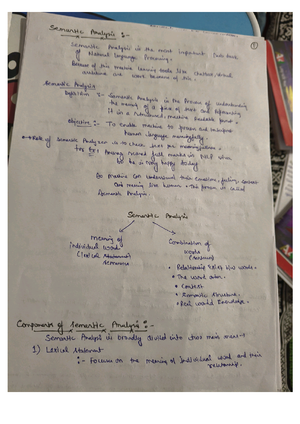 Semantic Analysis :-
Semantic Analysis is the most important sub task
of Natural language Processing.
Because of this machine learning tools like chatbot, virtual
assistance are
Semantic Analysis
Definition :- Semantic Analysis is the Process of understanding
the meaning of a piece of text and representing
it in a structured, machine readable format.
Objective :- To enable machine to process and interpret
human language meaningfully.
Role of Semantic Analyzer is to check text for meaningfulness.
For Ex: Anurag scored full marks in NLP when
he is very happy today.
So machine can understand their emotion, feeling, context
and meaning like human. This process is called
Semantic Analysis.
Semantic Analysis
Meaning of
individual word
(lexical statement)
semantics
Combination of
words
• Relationship b/w words.
• The word order.
• Context
• Semantic structure.
• Real world knowledge.
Components of Semantic Analysis :-
Semantic Analysis is broadly divided into two main
1) Lexical Statement
:- Focuses on the meaning of individual word and their
relationship.